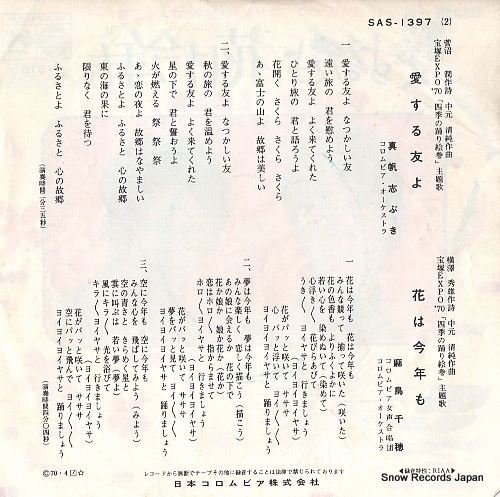 SAS-1397 (2)
菅沼 潤作詩 中元 清純作曲
宝塚EXPO'70「四季の踊り絵巻」主題歌
愛する友よ
真帆志ぶき
コロムビア・オーケストラ
一、愛する友よ なつかしい友
遠い旅の 君を慰めよう
愛する友よ よく来てくれた
ひとり旅の 君と語ろうよ
花開く さくら さくら さくら
あゝ富士の山よ 故郷は美しい
二、愛する友よ なつかしい友
秋の旅の 君を温めよう
愛する友よ よく来てくれた
星の下で 君と誓おうよ
火が燃える 祭 祭 祭
あゝ恋の夜よ 故郷はなやましい
ふるさとよ ふるさと 心の故郷
東の海の果に
限りなく 君を待つ
ふるさとよ ふるさと 心の故郷
(演奏時間二分三五秒)
横澤 秀雄作詩 中元 清純作曲
宝塚EXPO'70「四季の踊り絵巻」主題歌
花は今年も
麻鳥千穂
コロムビア女声合唱団
コロムビア・オーケストラ
一、花は今年も 花は今年も
みんな競って 揃って咲いた(咲いた)
花の色香も よりふくよかに
若い心を 染めたい(染めて)
心浮き〱 花びらあびて
うき〱 ヨイヤサと 行きましょう
花がパッと咲いて ササササ
心 パッと浮いて ササササ
ヨイヨイヨイヤサと 踊りましょう
二、夢は今年も 夢は今年も
みんな楽しく 恋しく描こう(描こう)
あの娘に会えるか 花の下で
花か娘か 娘か花か(花か)
恋はホロ〱 指からまぜて
ホロ〱 ヨイヤサと 行きましょう
花がパッと咲いて ササササ
夢をパッと見て ササササ
ヨイヨイヨイヤサと 踊りましょう
三、空に今年も 空に今年も
みんな心を 飛ばしてみよう(みよう)
空の青さと きらめく星と
雲に叫ぶは 若い夢(夢よ)
風にキラ〱 光を浴びて
キラ〱 ヨイヤサと 行きましょう
花がパッと咲いて ササササ
空にパッと飛んで ササササ
ヨイヨイヨイヤサと 踊りましょう
(演奏時間四分〇四秒)
◀録音特性:RIAA▶
Ⓒ70・4
レコードから無断でテープその他に録音することは法律で禁じられております
日本コロムビア株式会社
Snow Records Japan